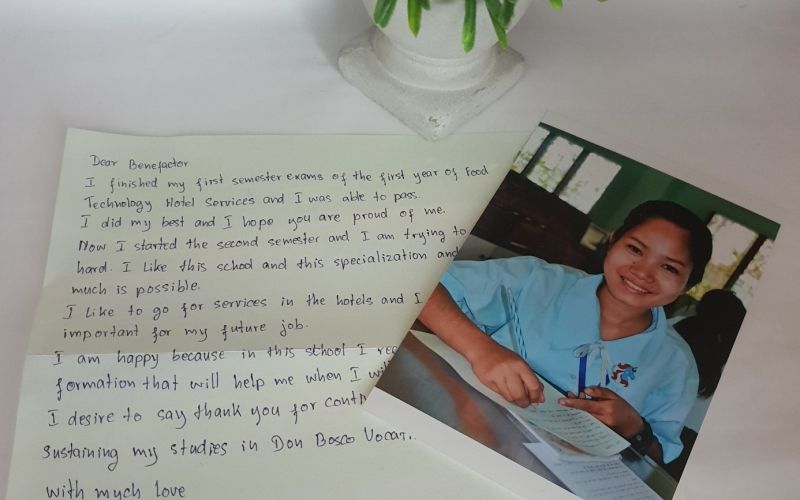 Dear Benefactor
I finished my first semester exams of the first year of Food
Technology Hotel Services and I was able to pass.
I did my best and I hope you are proud of me.
Now I started the second semester and I am trying to
hard. I Like this school and this specialization and
much is possible.
I Like to go for services in the hotels and I
important for my future job.
I am happy because in this school I rec
formation that will help me when I wi
I desire to say thank you for cont
sustaining my studies in Don Bosco Vocat
with much love